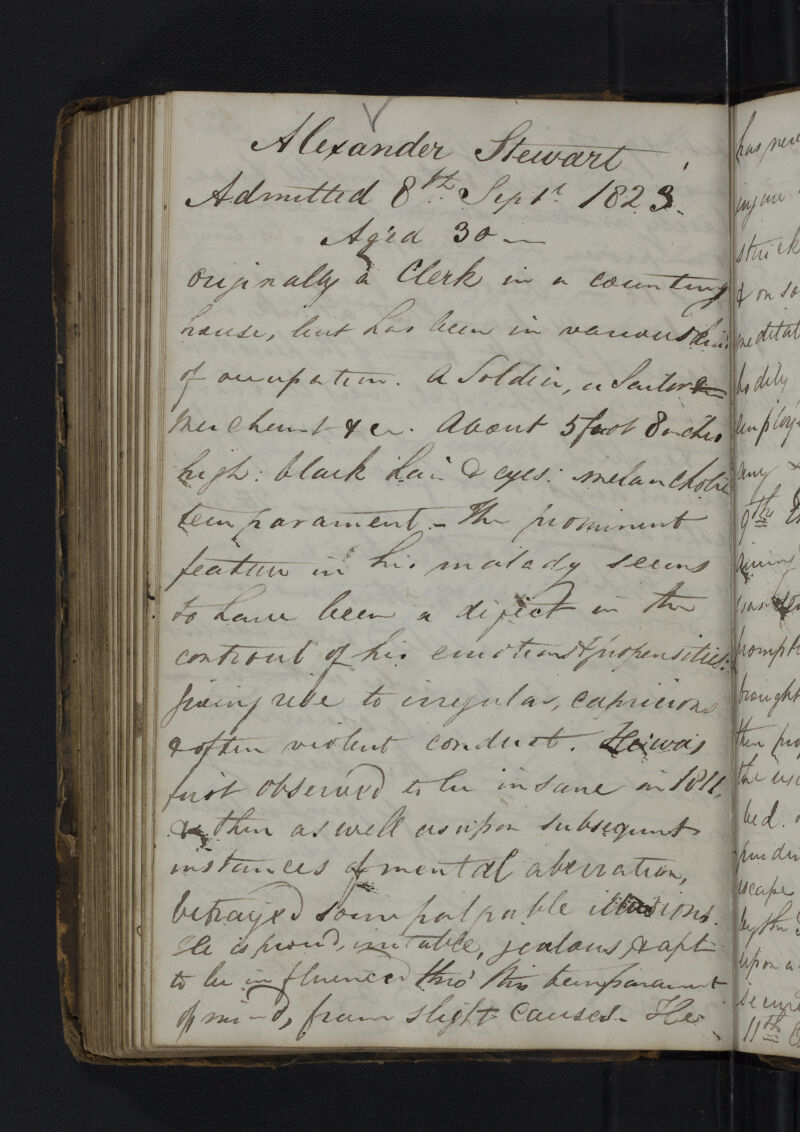 Alexander Stewart
Admitted 8th Sept 1823.
Aged 30
originally a Clerk in a counting
house, but has been in various
of occupation. A Soldier, a Sailor
Merchant &c. About 5 foot 8 inches
high: black hair & eyes: melancholic
temparament - The prominent
feature in his malady seems
to have been a defect in the
controul of his emotions & propensities:
giving rise to irregular, capricious
& often violent conduct. He was
first observed to be insane in 1811,
& then as well as upon subsequent
instances of mental aberration,
betrayed some palpable illusions.
He is proud, irritable, jealous, & apt
to be influenced thro' this temparament
of mind, from slight causes. He
has
struck
& on
bodily
any
9th
brought
the
bed.
escape
upon a
11th